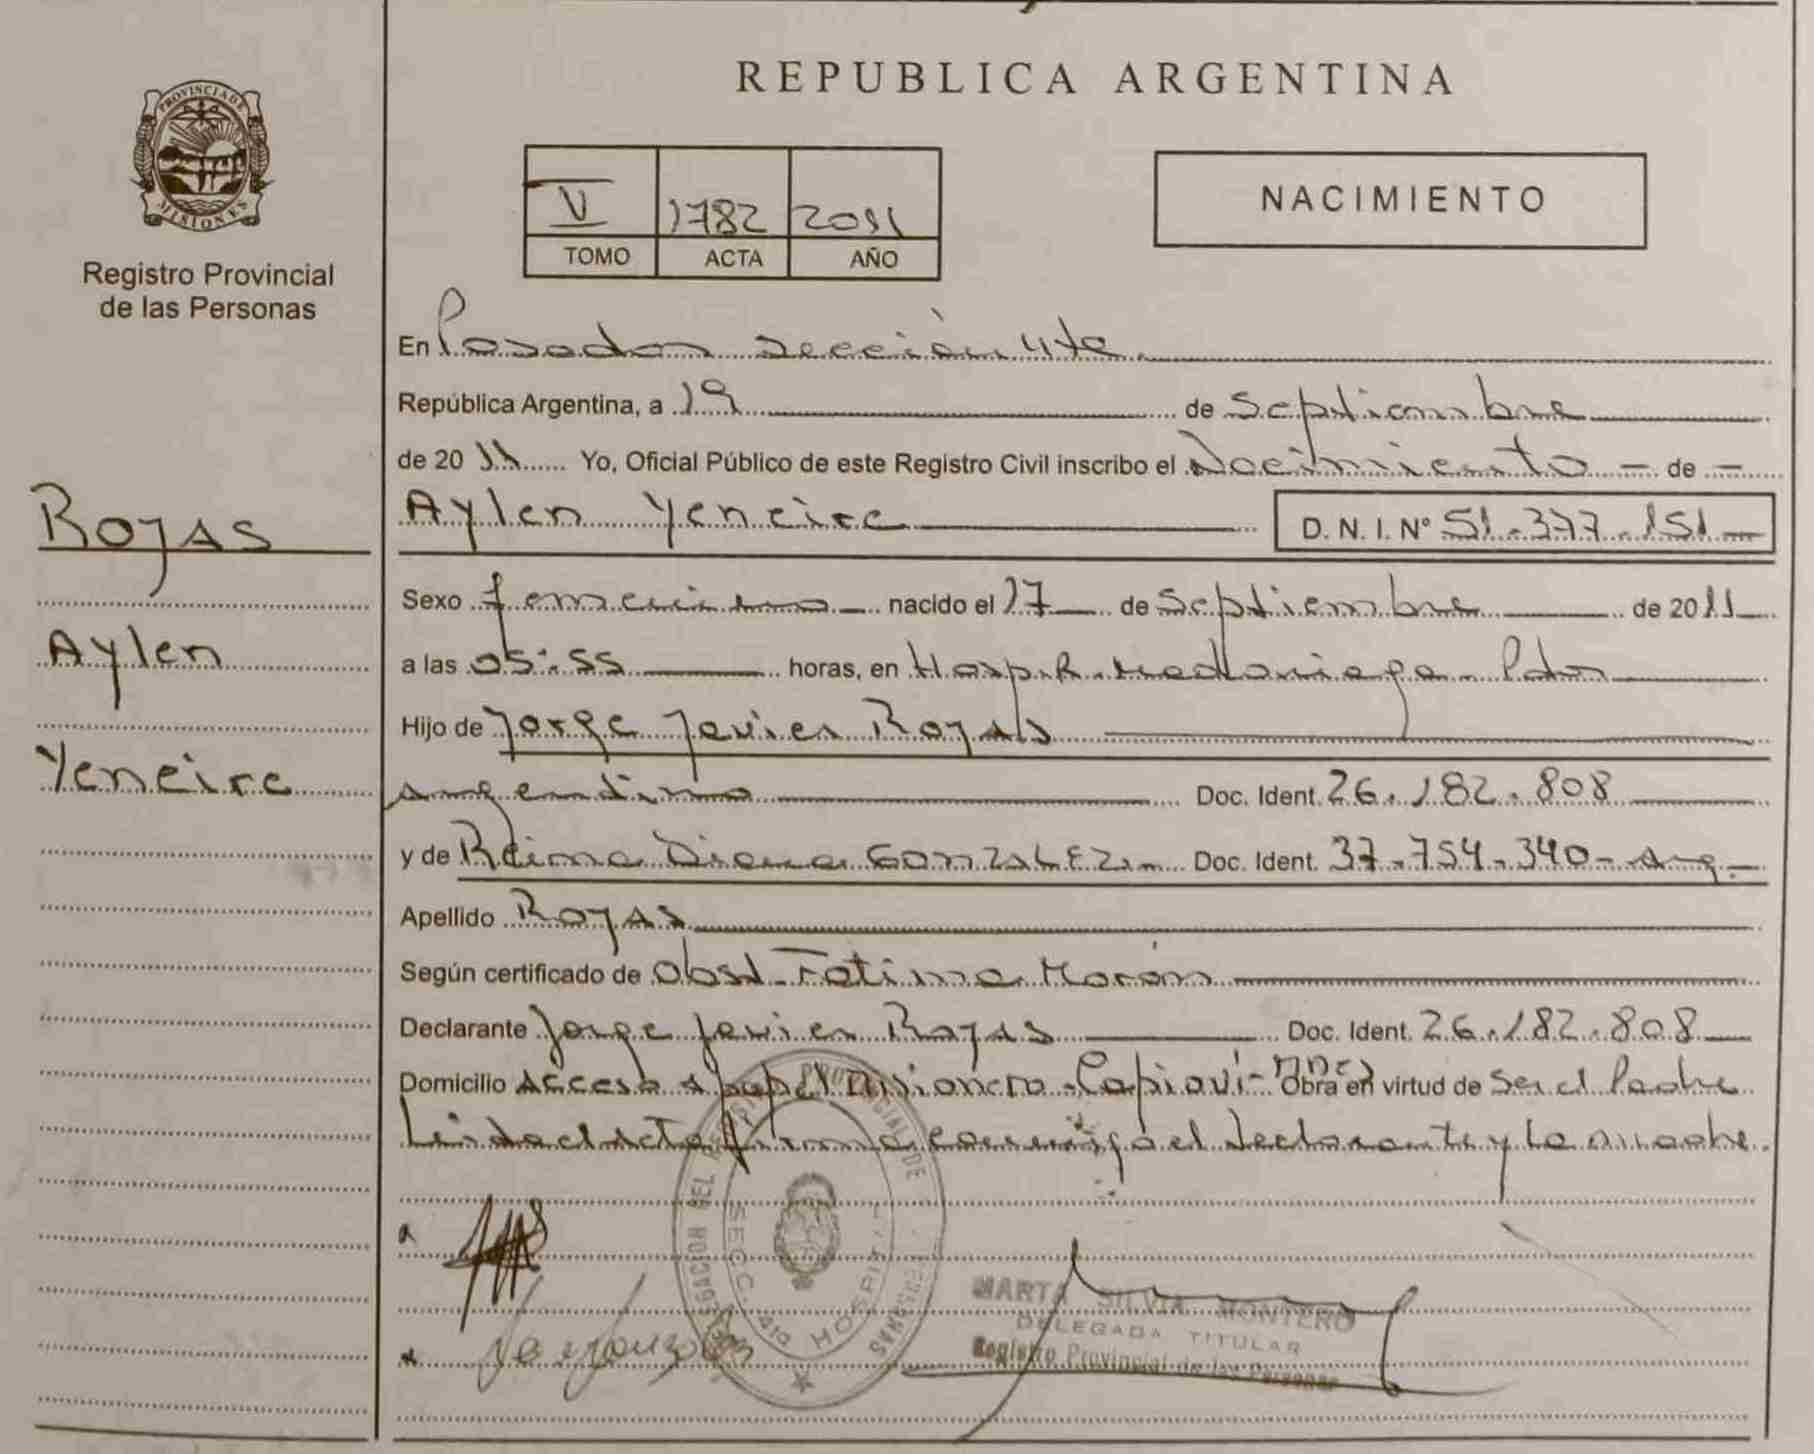 REPUBLICA ARGENTINA
PROVINCIA DE MISIONES
Registro Provincial
de las Personas
V 1782 2011
TOMO ACTA AÑO
NACIMIENTO
En Posadas sección 4ta
República Argentina, a 19 de Septiembre
de 2011 Yo, Oficial Público de este Registro Civil inscribo el Nacimiento - de -
Aylen Yeneire D. N. I. Nº 51.377.151
ROJAS
Aylen
Yeneire
Sexo femenino nacido el 17 de Septiembre de 2011
a las 05:55 horas, en Hospit. Madariaga Pdas
Hijo de Jorge Javier ROJAS
argentino Doc. Ident. 26.182.808
y de Diana GONZALEZ Doc. Ident. 37.754.340 - Arg.
Apellido ROJAS
Según certificado de Obst. Fatima Morán
Declarante Jorge Javier Rojas Doc. Ident. 26.182.808
Domicilio Acceso a papel Misionero - Capioví - Mnes Obra en virtud de Ser el Padre
Leida el acta firma conmigo el declarante y la madre.
MARTA SILVIA MONTERO
DELEGADA TITULAR
Registro Provincial de las Personas